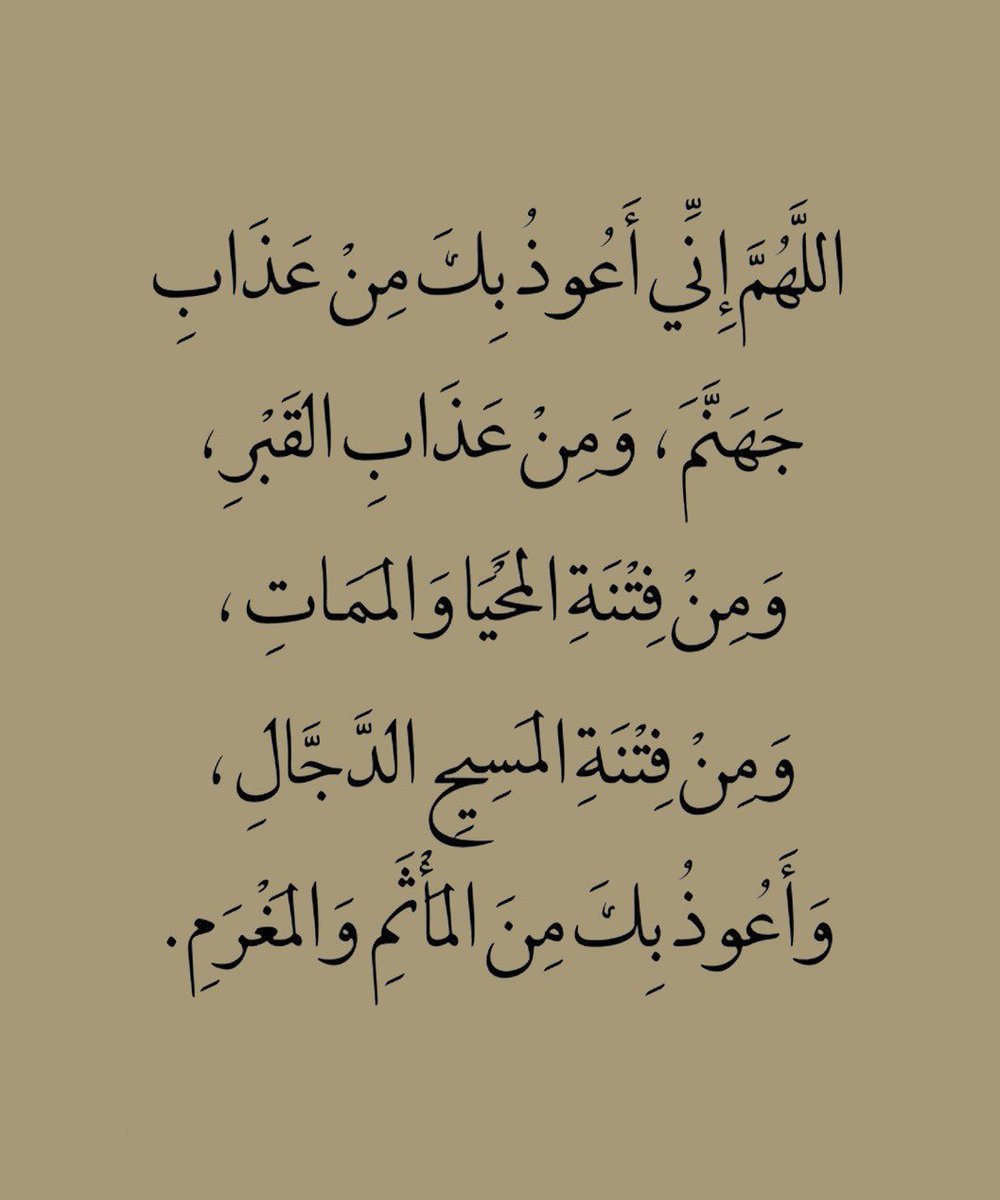 اللَّهُمَّ إِنِّي أَعُوذُ بِكَ مِنْ عَذَابِ
جَهَنَّمَ، وَمِنْ عَذَابِ القَبْرِ،
وَمِنْ فِتْنَةِ المَحْيَا وَالمَمَاتِ،
وَمِنْ فِتْنَةِ المَسِيحِ الدَّجَّالِ،
وَأَعُوذُ بِكَ مِنَ المَأْثَمِ وَالمَغْرَمِ.